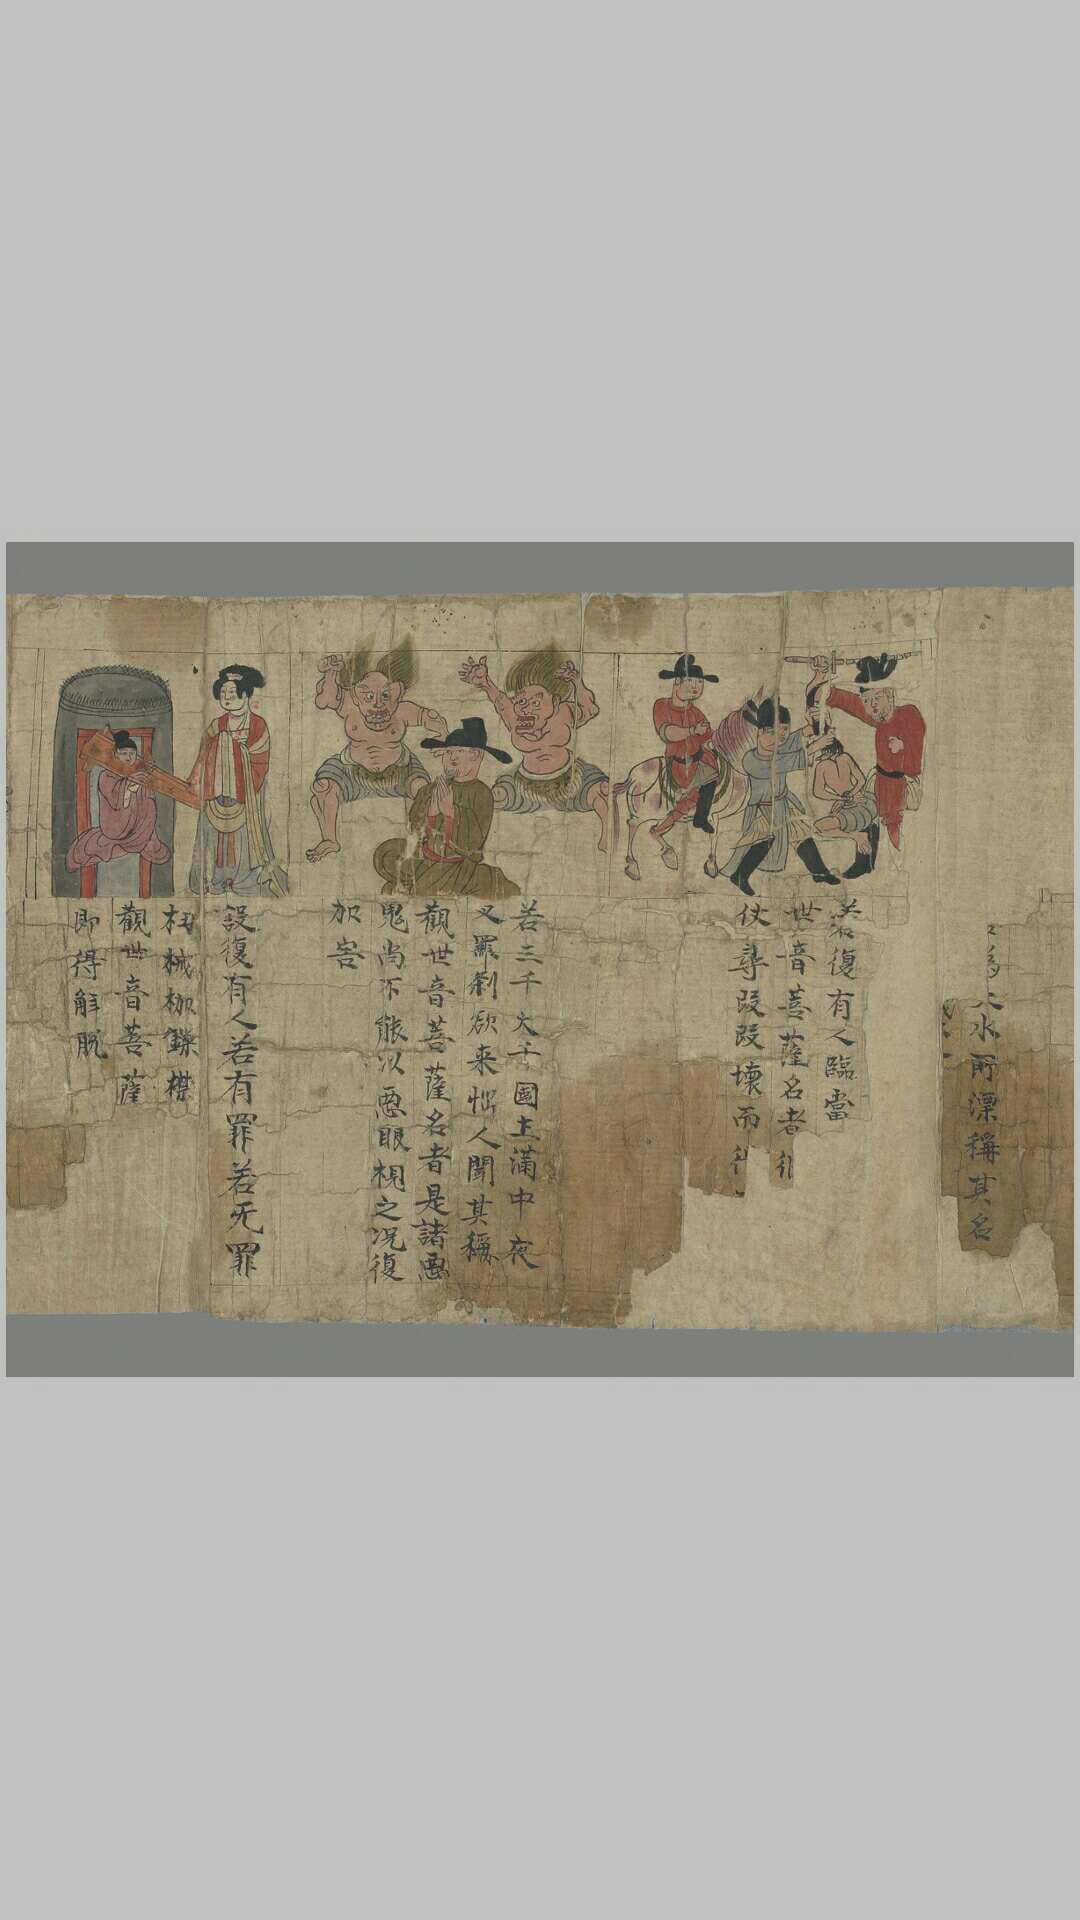 大水所漂稱其名
若復有人臨當
世音菩薩名者彼
仗尋段段壞而
若三千大千國土滿中夜
叉羅剎欲来惱人聞其稱
觀世音菩薩名者是諸惡
鬼尚不能以惡眼視之况復
加害
設復有人若有罪若无罪
杻械枷鏁檢
觀世音菩薩
即得解脫